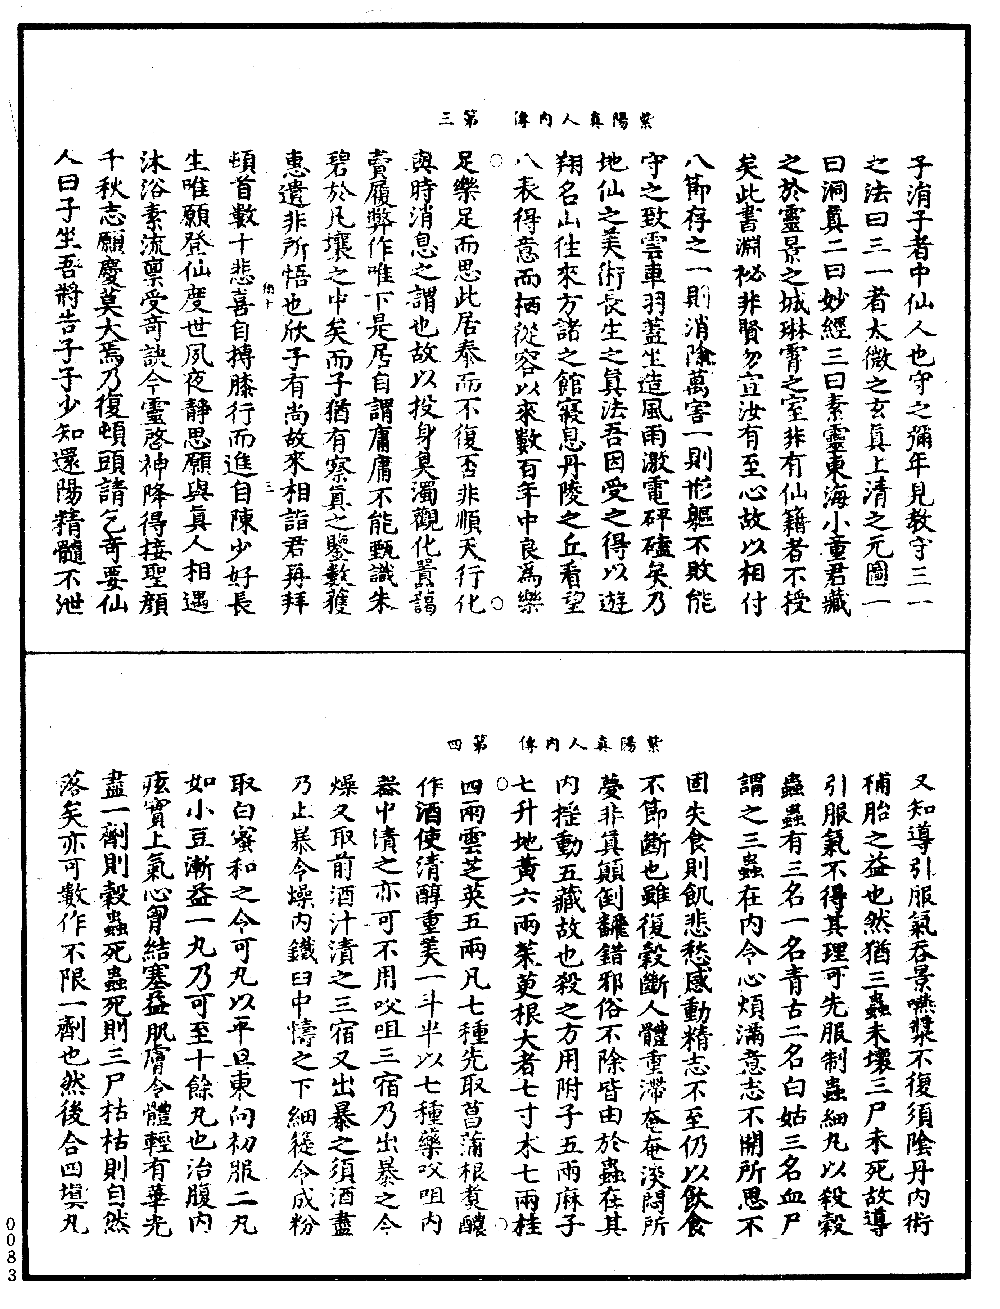 紫陽真人內傳　第三
子涓子者中仙人也守之彌年見教守三一
之法曰三一者太微之玄真上清之元圖一
曰洞真二曰妙經三曰素靈東海小童君藏
之於靈景之城琳霄之室非有仙籍者不授
矣此書淵祕非賢勿宣汝有至心故以相付
八節存之一則消除萬害一則形軀不敗能
守之致雲車羽蓋坐造風雨激電砰磕矣乃
地仙之美術長生之真法吾因受之得以遊
翔名山往來方諸之館寢息丹陵之丘看望
八表得意而栖從容以來數百年中良為樂
足樂足而思此居泰而不復否非順天行化
與時消息之謂也故以投身臭濁觀化囂謁
賣履弊作唯下是居自謂庸庸不能甄識朱
碧於凡壤之中矣而子猶有察真之鑒數獲
惠遺非所悟也欣子有尚故來相詣君再拜
頓首數十悲喜自搏膝行而進自陳少好長
生唯願登仙度世夙夜靜思願與真人相遇
沐浴素流稟受奇訣今靈啓神降得接聖顔
千秋志願慶莫大焉乃復頓頭請乞奇要仙
人曰子坐吾將告子子少知還陽精髓不泄
紫陽真人內傳　第四
又知導引服氣吞景嚥漿不復須陰丹內術
補胎之益也然猶三蟲未壞三尸未死故導
引服氣不得其理可先服制蟲細丸以殺穀
蟲蟲有三名一名青古二名白姑三名血尸
謂之三蟲在內令心煩滿意志不開所思不
固失食則飢悲愁感動精志不至仍以飲食
不節斷也雖復穀斷人體重滯奄奄淡悶所
夢非真顛倒飜錯邪俗不除皆由於蟲在其
內搖動五藏故也殺之方用附子五兩麻子
七升地黃六兩茱萸根大者七寸朮七兩桂
四兩雲芝英五兩凡七種先取菖蒲根煮醲
作酒使清醇重美一斗半以七種藥㕮咀內
器中漬之亦可不用㕮咀三宿乃出暴之令
燥又取前酒汁漬之三宿又出暴之須酒盡
乃止暴令燥內鐵臼中擣之下細簁令成粉
取白蜜和之令可丸以平旦東向初服二丸
如小豆漸益一丸乃可至十餘丸也治腹內
痃實上氣心胷結塞益肌膚令體輕有華光
盡一劑則穀蟲死蟲死則三尸枯枯則自然
落矣亦可數作不限一劑也然後合四填丸
0083